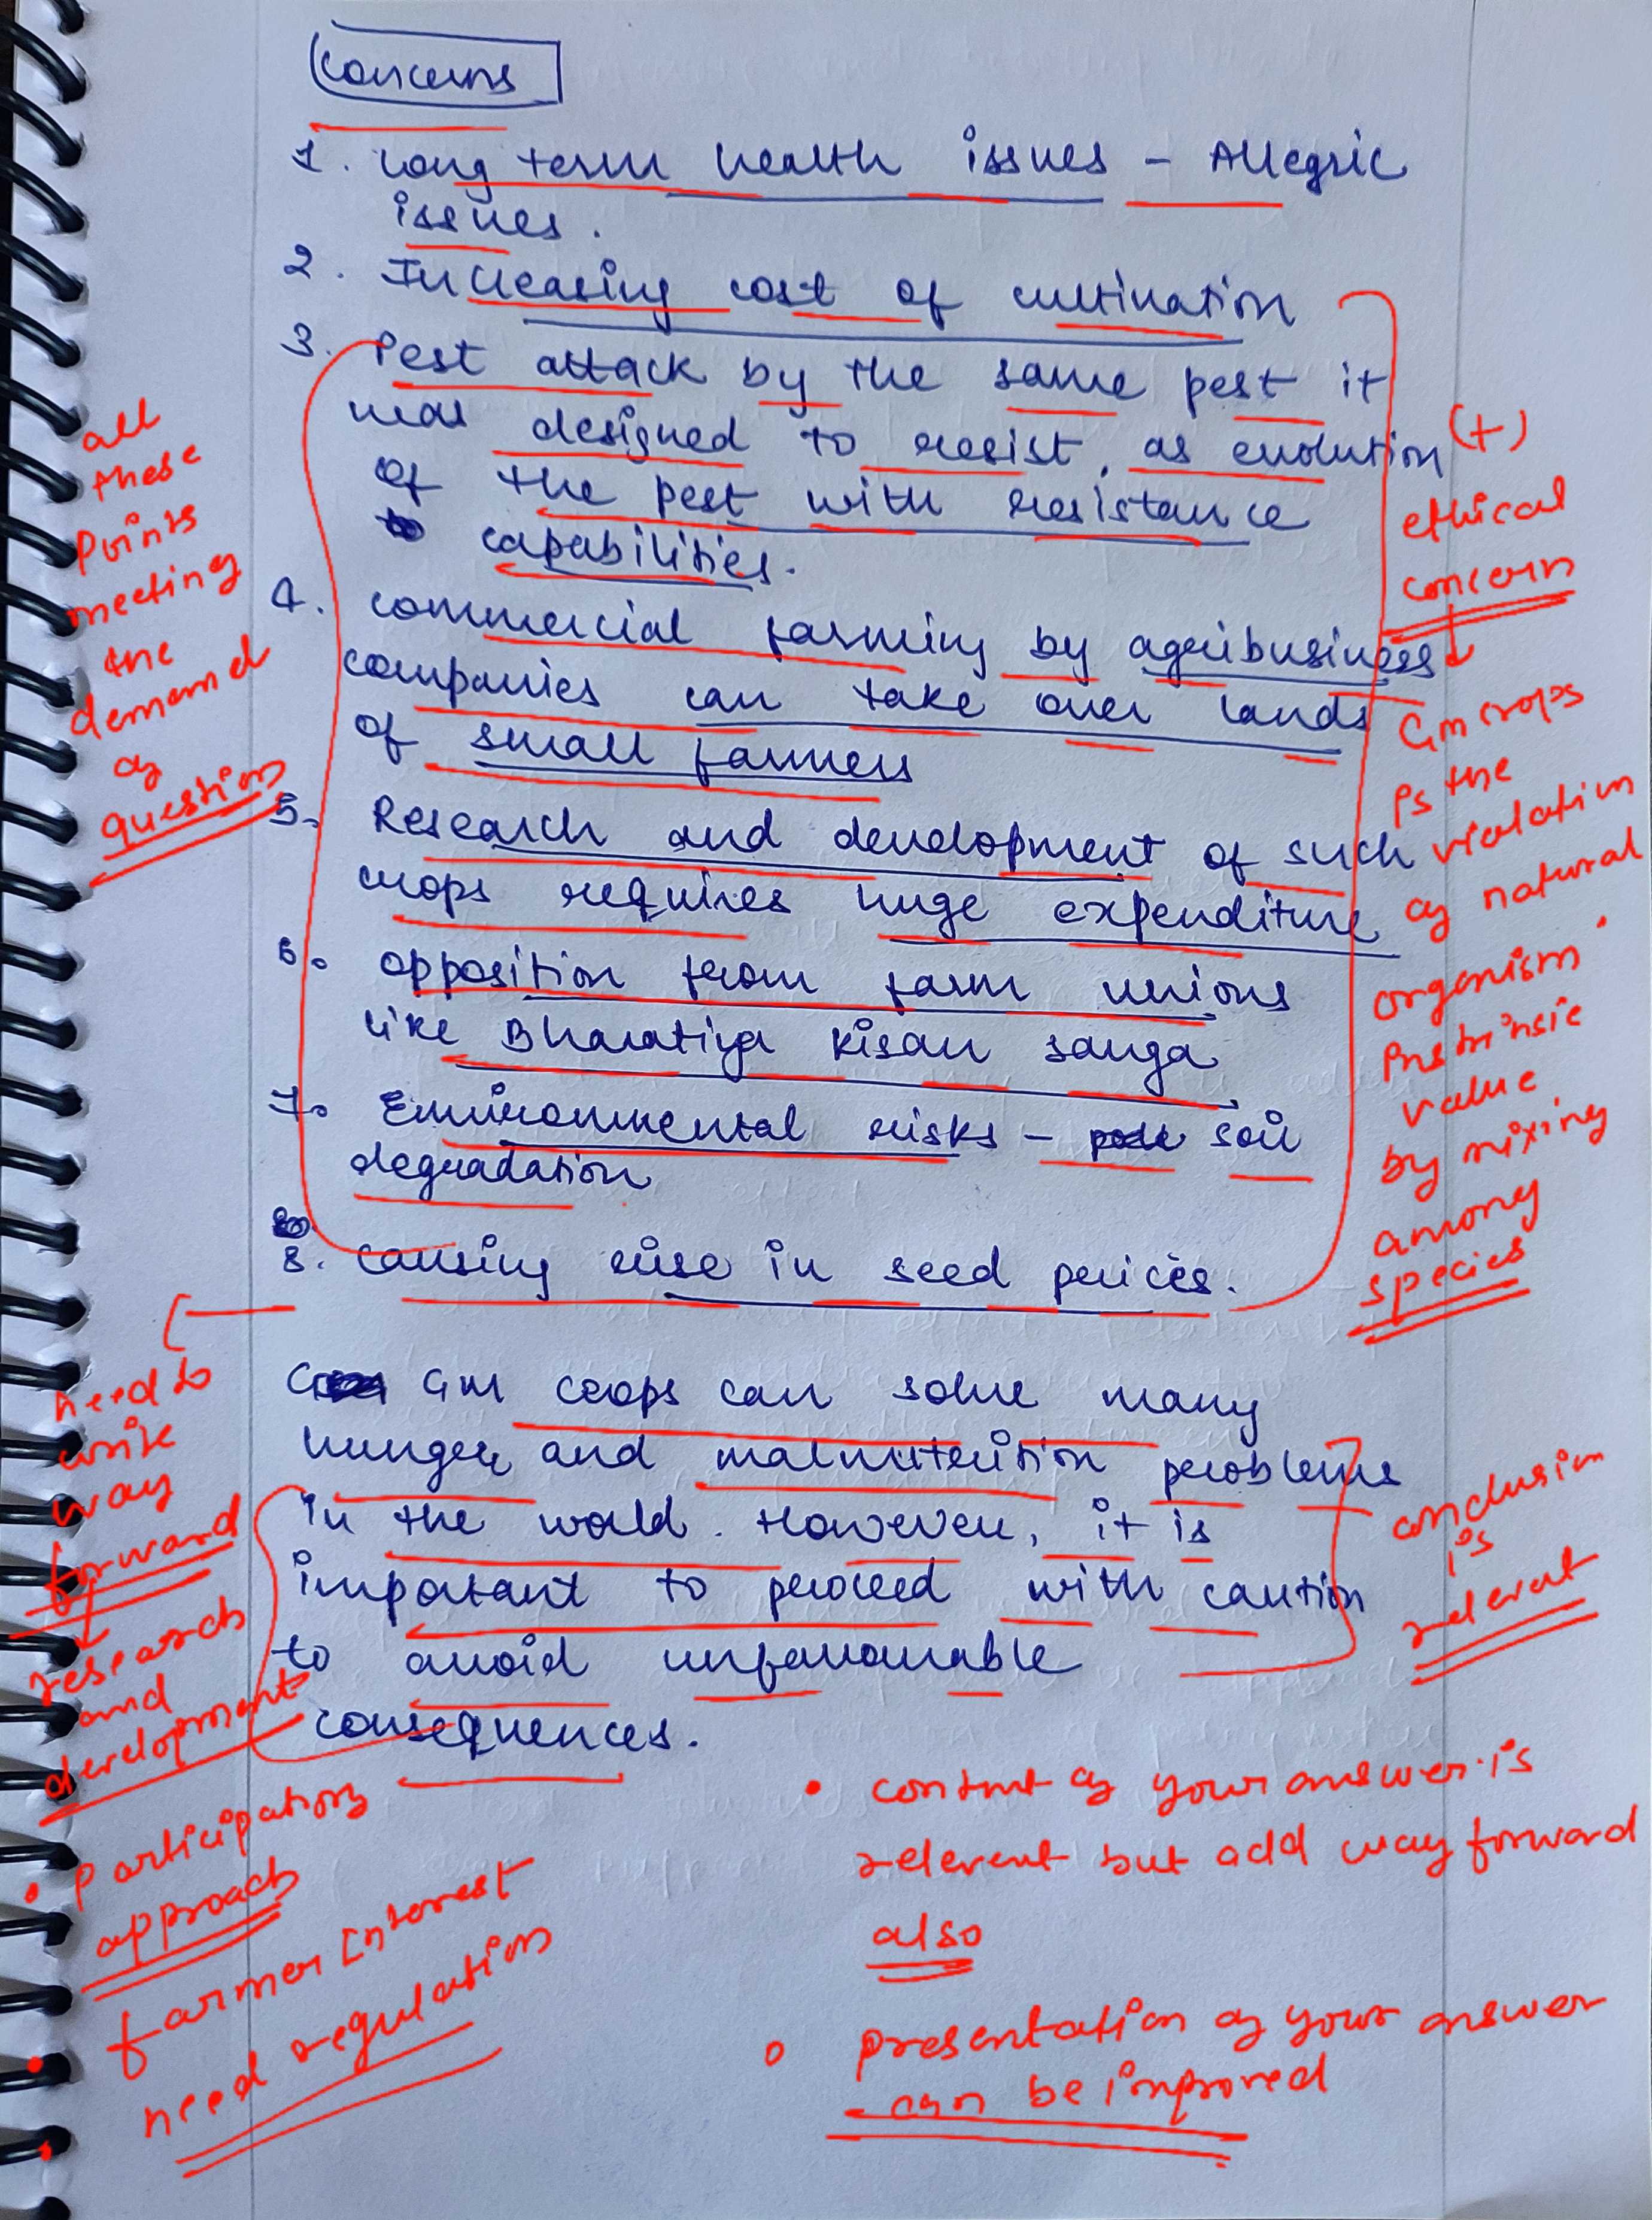 Concerns
1. Long term health issues - Allegric
issues.
2. Increasing cost of cultivation
3. Pest attack by the same pest it
was designed to resist, as evolution
of the pest with resistance
capabilities.
4. commercial farming by agribusiness
companies can take over lands
of small farmers
5. Research and development of such
crops requires huge expenditure
6. opposition from farm unions
like Bharatiya Kisan Sanga
7. Environmental risks - soil
degradation
8. causing rise in seed prices.
GM crops can solve many
hunger and malnutrition problems
in the world. However, it is
important to proceed with caution
to avoid unfavourable
consequences.
all
these
points
meeting
the
demand
of
question
(+)
ethical
concern
GM crops
is the
violation
of natural
organism
intrinsic
value
by mixing
among
species
need to
write
way
forward
research
and
development
• participatory
approach
• farmer interest
• need regulation
conclusion
is
relevent
• content of your answer is
relevent but add way forward
also
• presentation of your answer
can be improved